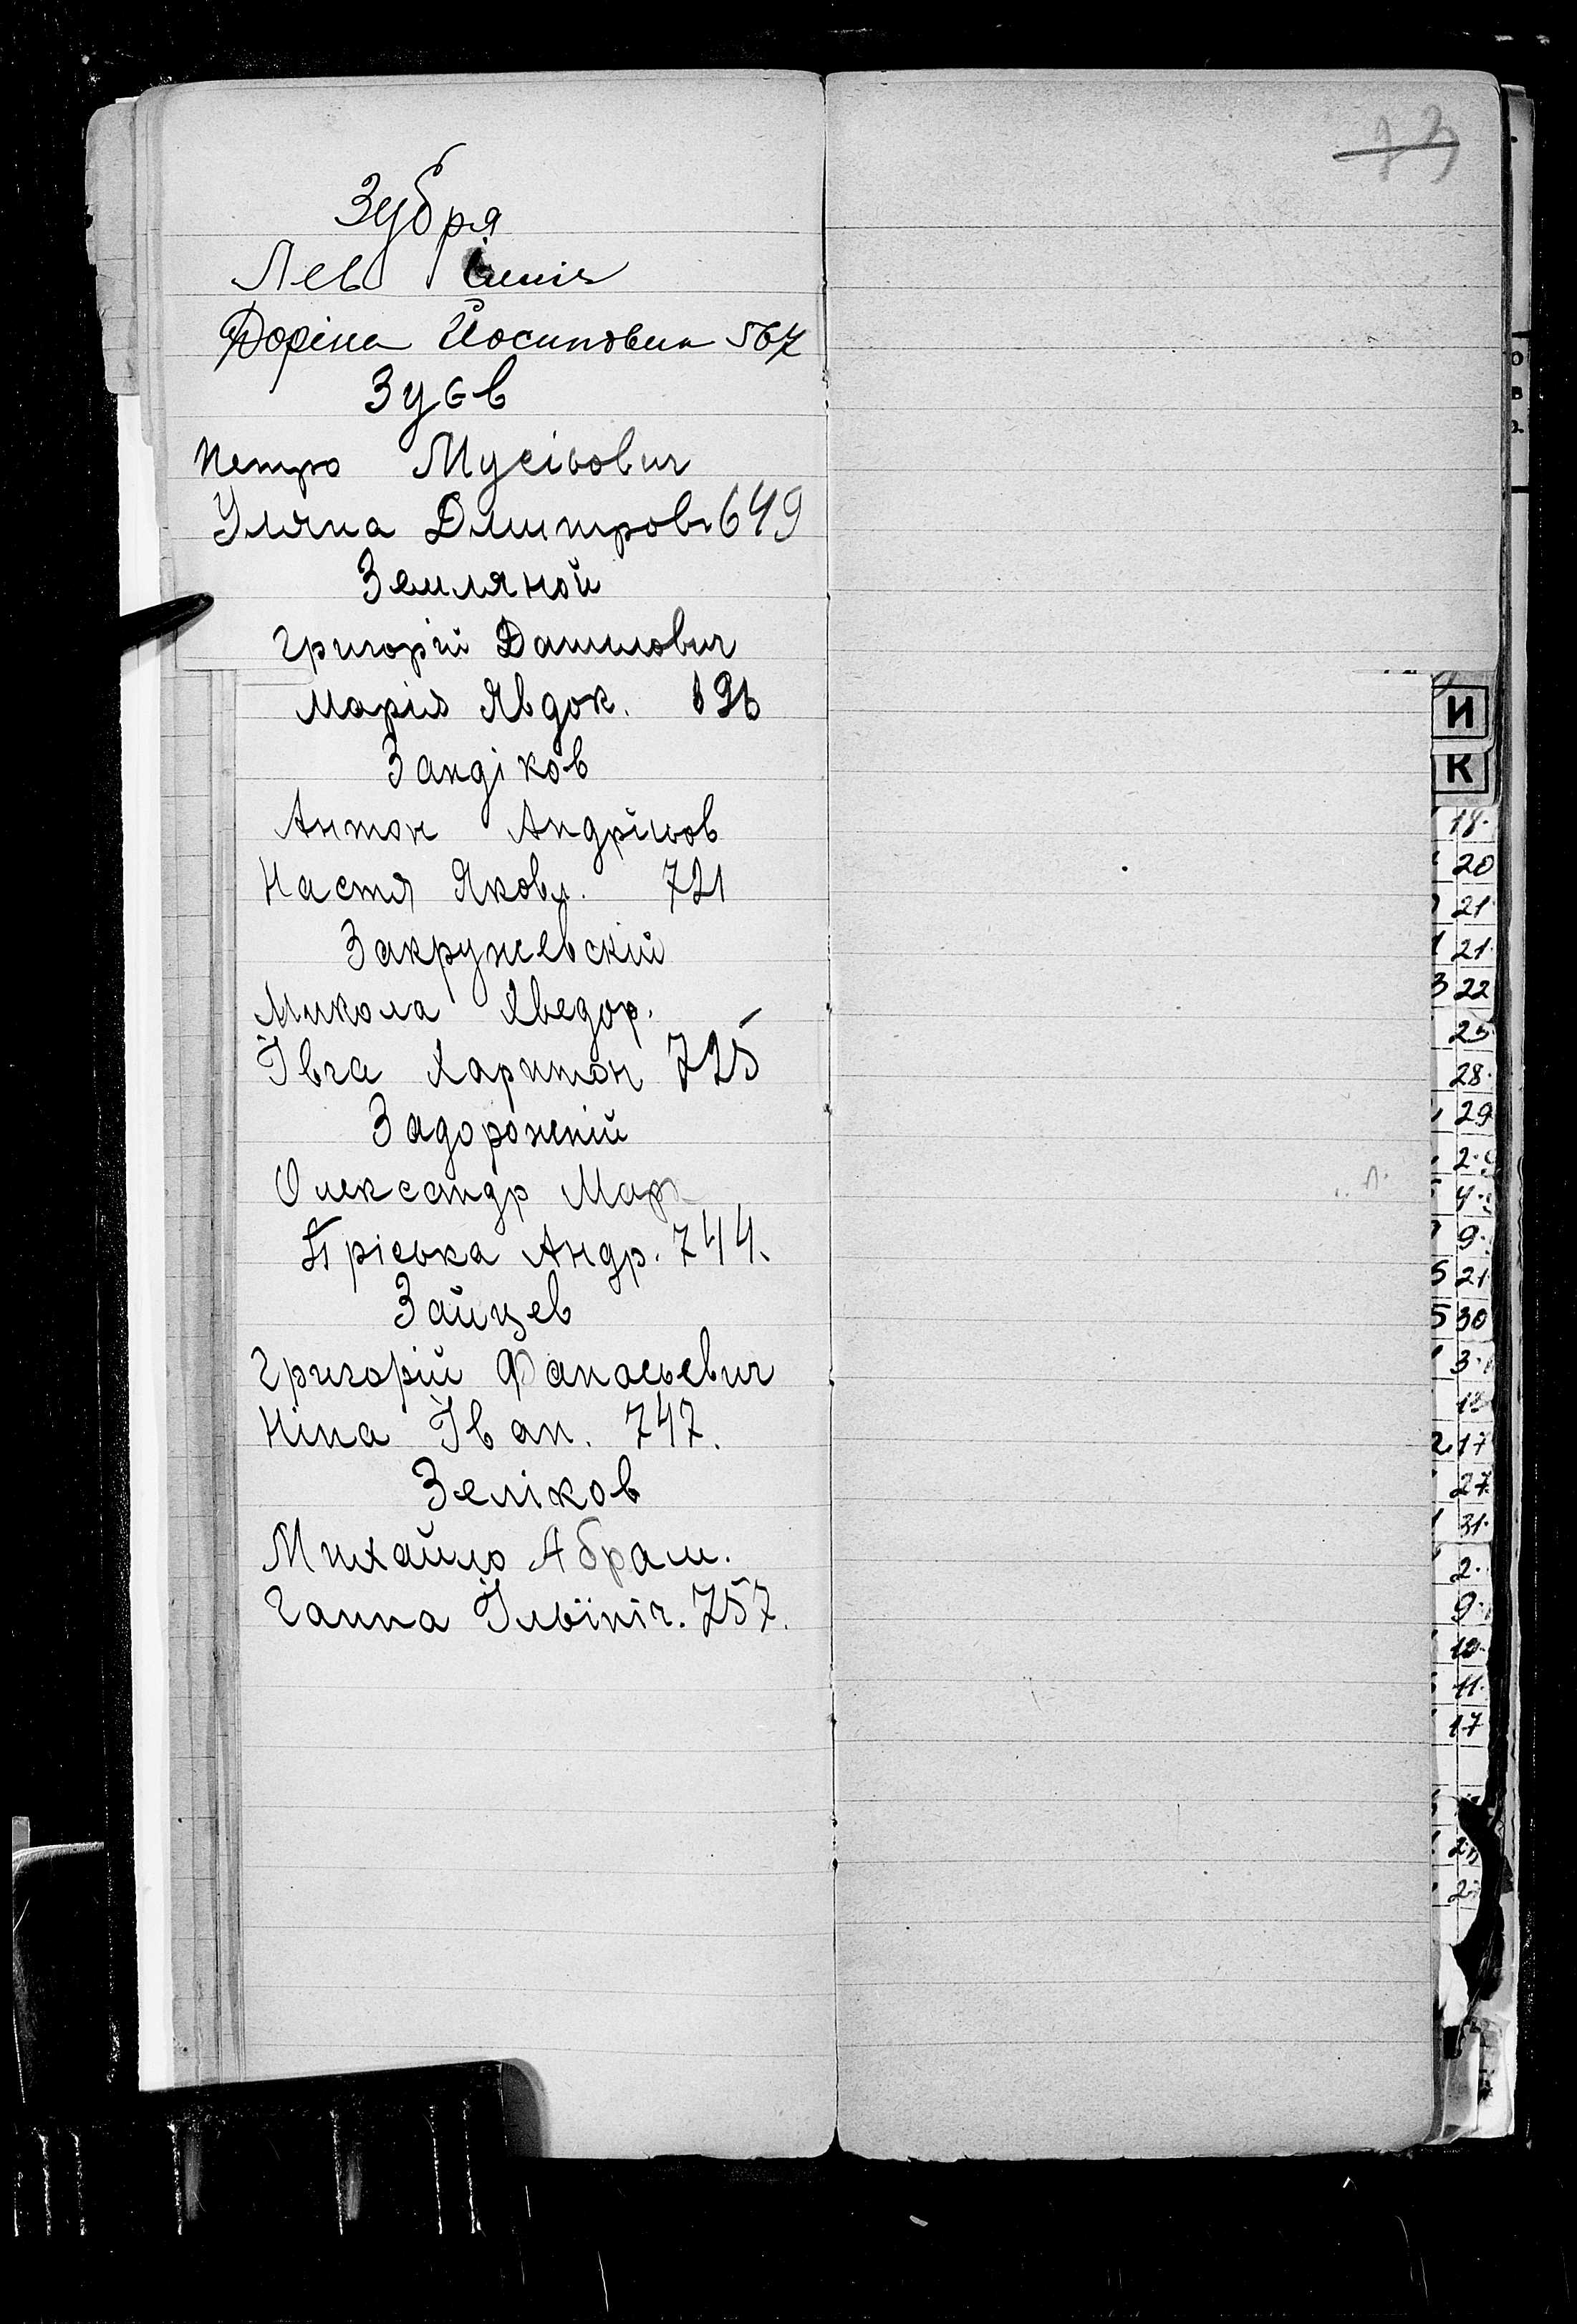 Зубря
Лев
Доріна Йосиповна 567
Зуєв
Петро Мусійович
Уляна Дмитров 649
Земляной
Григорій Данилович
Марія Явдок. 696
Зандіков
Антон Андрійов
Настя Яковл. 721
Закружевскій
Микола Хведор.
Івга Харитон 725
Задорожній
Олександр Марк
Пріська Андр. 744.
Зайцев
Григорій Фанасьевич
Ніна Іван. 747.
Зеліков
Михайло Абрам.
Ганна Ільїніч. 757.
73
И
К
18.
20
21
21.
3 22
25
28.
29
9.
5 21
5 30
3.
18
2 17
27
31.
2.
9.
10.
11.
17